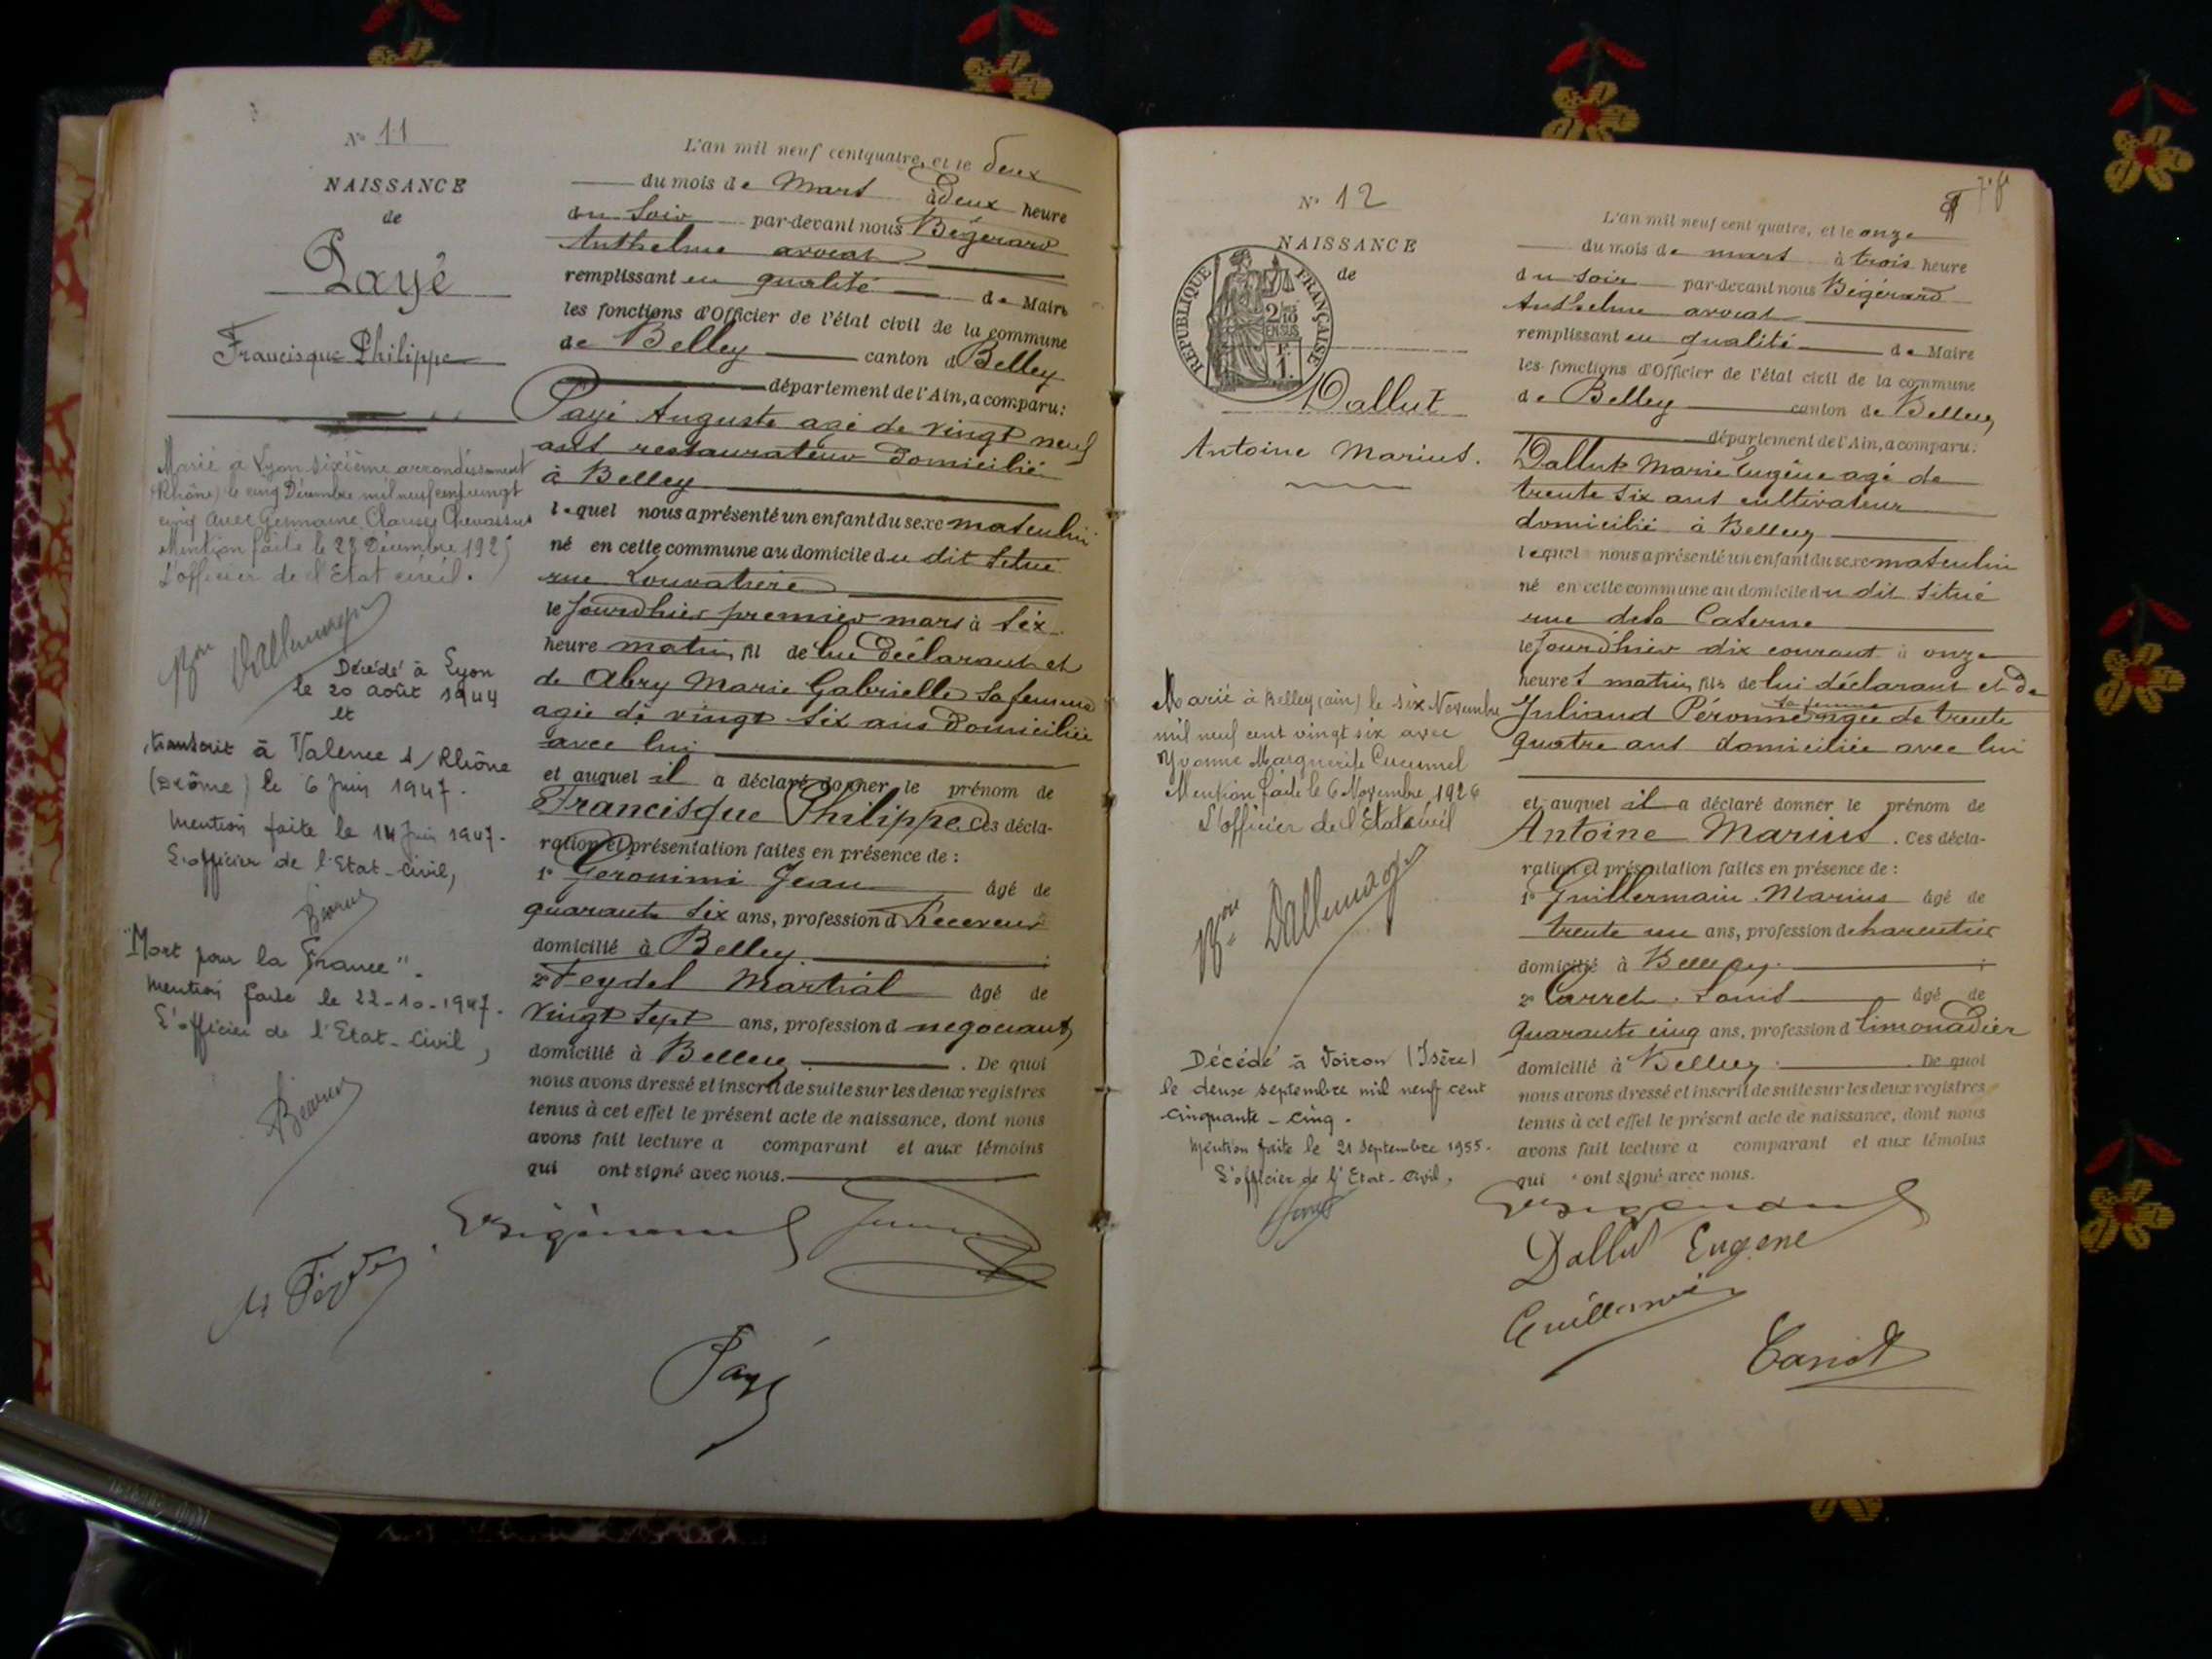 N° 11
NAISSANCE
de
Payé
Francisque Philippe
Marié à Lyon sixième arrondissement
(Rhône) le cinq Décembre mil neuf cent vingt
cinq avec Germaine Clausy Chevassus
Mention faite le 28 Décembre 1925
L'officier de l'Etat civil.
Bon Dallemagne
Décédé à Lyon
le 20 août 1944
et
transcrit à Valence s/Rhône
(Drôme) le 6 Juin 1947.
Mention faite le 14 Juin 1947.
L'officier de l'Etat-Civil,
"Mort pour la France".
Mention faite le 22-10-1947.
L'officier de l'Etat-Civil,
L'an mil neuf cent quatre, et le deux
du mois de Mars à deux heure
du Soir par-devant nous Bégérard
Anthelme avocat
remplissant en qualité de Maire
les fonctions d'Officier de l'état civil de la commune
de Belley canton d Belley
département de l'Ain, a comparu:
Payé Auguste agé de vingt neuf
ans restaurateur domicilié
à Belley
lequel nous a présenté un enfant du sexe masculin
né en cette commune au domicile du dit situé
rue Louvatière
le jourdhier premier mars à six
heure matin, fil de lui déclarant et
de Abry Marie Gabrielle sa femme
agée de vingt six ans domiciliée
avec lui
et auquel il a déclaré donner le prénom de
Francisque Philippe. Ces décla-
ration et présentation faites en présence de :
1° Geronimi Jean âgé de
quarante six ans, profession d Receveur
domicilié à Belley ;
2° Feydel Martial âgé de
vingt sept ans, profession d negociant
domicilié à Belley . De quoi
nous avons dressé et inscrit de suite sur les deux registres
tenus à cet effet le présent acte de naissance, dont nous
avons fait lecture a comparant et aux témoins
qui ont signé avec nous.
Bégérard
Payé
N° 12
NAISSANCE
de
RÉPUBLIQUE FRANÇAISE
2/10 EN SUS
F. 1.
Dallut
Antoine Marius.
Marié à Belley (ain) le six Novembre
mil neuf cent vingt six avec
Yvonne Marguerite Cucumel
Mention faite le 6 Novembre 1926
L'officier de l'Etat civil
Bon Dallemagne
Décédé à Voiron (Isère)
le deux septembre mil neuf cent
cinquante-cinq.
Mention faite le 21 septembre 1955.
L'officier de l'Etat-Civil,
L'an mil neuf cent quatre, et le onze
du mois de mars à trois heure
du soir par-devant nous Bégérard
Anthelme avocat
remplissant en qualité de Maire
les fonctions d'Officier de l'état civil de la commune
de Belley canton de Belley
département de l'Ain, a comparu:
Dallut Marie Eugène agé de
trente six ans cultivateur
domicilié à Belley
lequel nous a présenté un enfant du sexe masculin
né en cette commune au domicile du dit situé
rue de la Caserne
le jourdhier dix courant à onze
heures matin, fils de lui déclarant et de
Juliand Péronne sa femme agée de trente
quatre ans domiciliée avec lui
et auquel il a déclaré donner le prénom de
Antoine Marius. Ces décla-
ration et présentation faites en présence de :
1° Guillermain Marius âgé de
trente un ans, profession de charcutier
domicilié à Belley ;
2° Carret Louis âgé de
quarante cinq ans, profession d limonadier
domicilié à Belley . De quoi
nous avons dressé et inscrit de suite sur les deux registres
tenus à cet effet le présent acte de naissance, dont nous
avons fait lecture a comparant et aux témoins
qui ont signé avec nous.
Bégérard
Dallut Eugene
Guillermin